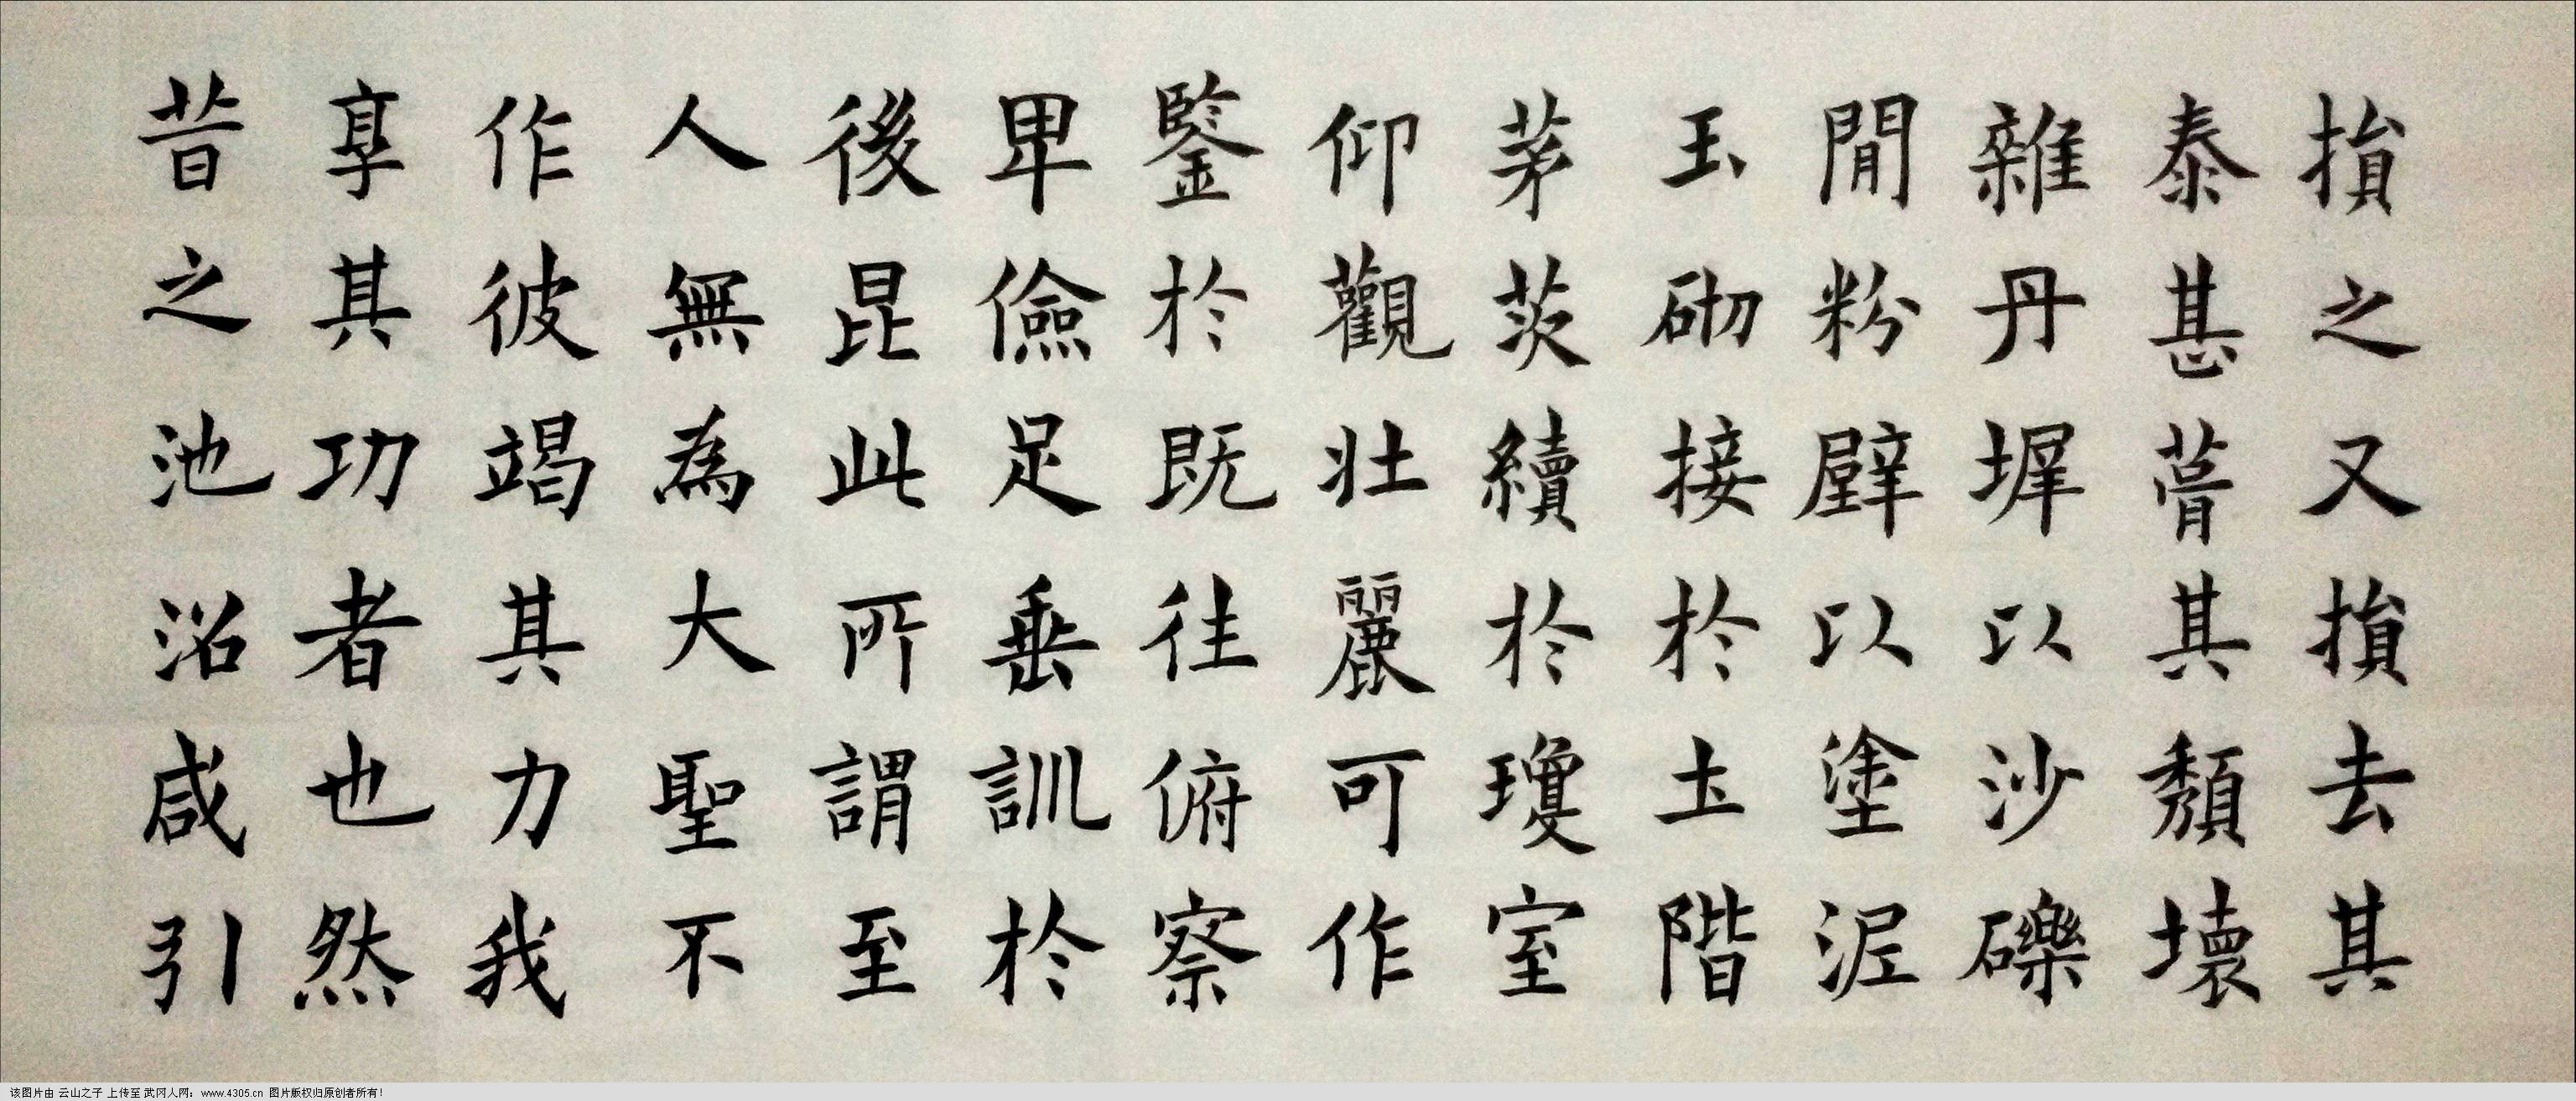 損之又損去其
泰甚葺其頹壞
雜丹墀以沙礫
間粉壁以塗泥
玉砌接於土階
茅茨續於瓊室
仰觀壯麗可作
鑒於既往俯察
卑儉足垂訓於
後昆此所謂至
人無為大聖不
作彼竭其力我
享其功者也然
昔之池沼咸引
该图片由 云山之子 上传至 武冈人网：www.4305.cn 图片版权归原创者所有！